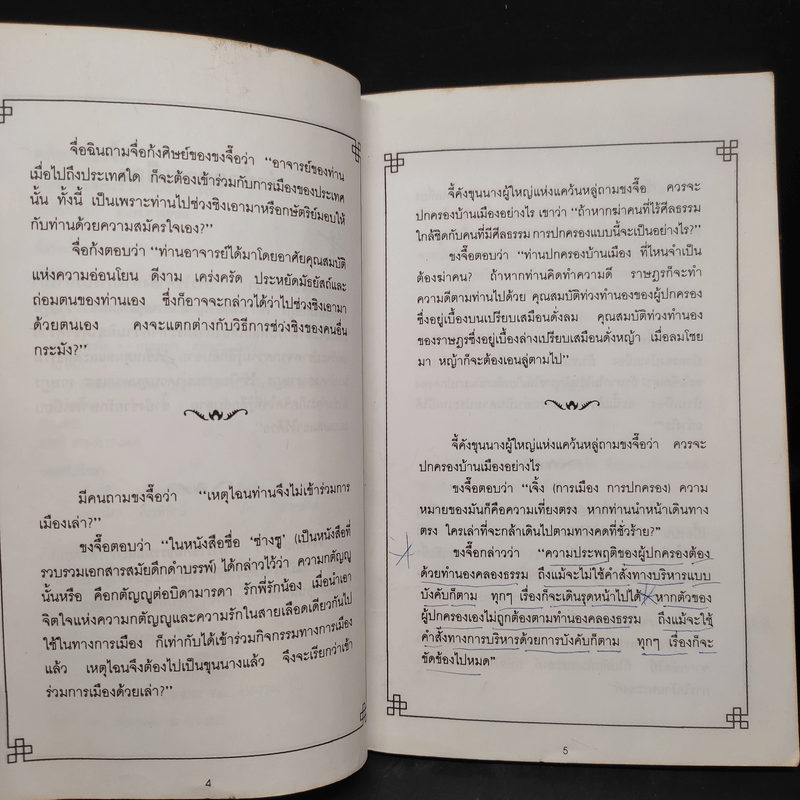 จื่อฉินถามจื่อก้งศิษย์ของขงจื๊อว่า “อาจารย์ของท่าน
เมื่อไปถึงประเทศใด ก็จะต้องเข้าร่วมกับการเมืองของประเทศ
นั้น ทั้งนี้ เป็นเพราะท่านไปช่วงชิงเอามาหรือกษัตริย์มอบให้
กับท่านด้วยความสมัครใจเอง?”
จื่อก้งตอบว่า “ท่านอาจารย์ได้มาโดยอาศัยคุณสมบัติ
แห่งความอ่อนโยน ดีงาม เคร่งครัด ประหยัดมัธยัสถ์และ
ถ่อมตนของท่านเอง ซึ่งก็อาจจะกล่าวได้ว่าไปช่วงชิงเอามา
ด้วยตนเอง คงจะแตกต่างกับวิธีการช่วงชิงของคนอื่น
กระมัง?”
มีคนถามขงจื๊อว่า “เหตุไฉนท่านจึงไม่เข้าร่วมการ
เมืองเล่า?”
ขงจื๊อตอบว่า “ในหนังสือชื่อ ‘ซ่างซู’ (เป็นหนังสือที่
รวบรวมเอกสารสมัยดึกดำบรรพ์) ได้กล่าวไว้ว่า ความกตัญญู
นั้นหรือ คือกตัญญูต่อบิดามารดา รักพี่รักน้อง เมื่อนำเอา
จิตใจแห่งความกตัญญูและความรักในสายเลือดเดียวกันไป
ใช้ในทางการเมือง ก็เท่ากับได้เข้าร่วมกิจกรรมทางการเมือง
แล้ว เหตุไฉนจึงต้องไปเป็นขุนนางแล้ว จึงจะเรียกว่าเข้า
ร่วมการเมืองด้วยเล่า?”
4
จี้คังขุนนางผู้ใหญ่แห่งแคว้นหลู่ถามขงจื๊อ ควรจะ
ปกครองบ้านเมืองอย่างไร เขาว่า “ถ้าหากฆ่าคนที่ไร้ศีลธรรม
ใกล้ชิดกับคนที่มีศีลธรรม การปกครองแบบนี้จะเป็นอย่างไร?”
ขงจื๊อตอบว่า “ท่านปกครองบ้านเมือง ที่ไหนจำเป็น
ต้องฆ่าคน? ถ้าหากท่านคิดทำความดี ราษฎรก็จะทำ
ความดีตามท่านไปด้วย คุณสมบัติท่วงทำนองของผู้ปกครอง
ซึ่งอยู่เบื้องบนเปรียบเสมือนดั่งลม คุณสมบัติท่วงทำนอง
ของราษฎรซึ่งอยู่เบื้องล่างเปรียบเสมือนดั่งหญ้า เมื่อลมโชย
มา หญ้าก็จะต้องเอนลู่ตามไป”
จี้คังขุนนางผู้ใหญ่แห่งแคว้นหลู่ถามขงจื๊อว่า ควรจะ
ปกครองบ้านเมืองอย่างไร
ขงจื๊อตอบว่า “เจิ้ง (การเมือง การปกครอง) ความ
หมายของมันก็คือความเที่ยงตรง หากท่านนำหน้าเดินทาง
ตรง ใครเล่าที่จะกล้าเดินไปตามทางคดที่ชั่วร้าย?”
ขงจื๊อกล่าวว่า “ความประพฤติของผู้ปกครองต้อง
ด้วยทำนองคลองธรรม ถึงแม้จะไม่ใช้คำสั่งทางบริหารแบบ
บังคับก็ตาม ทุกๆ เรื่องก็จะเดินรุดหน้าไปได้ หากตัวของ
ผู้ปกครองเองไม่ถูกต้องตามทำนองคลองธรรม ถึงแม้จะใช้
คำสั่งทางการบริหารด้วยการบังคับก็ตาม ทุกๆ เรื่องก็จะ
ขัดข้องไปหมด”
5